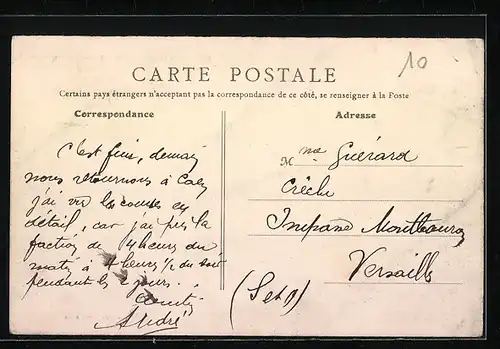 10
CARTE POSTALE
Certains pays étrangers n'acceptant pas la correspondance de ce côté, se renseigner à la Poste
Correspondance
Adresse
C'est fini, demain
nous retournons à Caen
j'ai vu les courses en
détail, car j'ai pris la
faction de 4 heures du
matin à 4 heures 1/2 du soir
pendant les 2 jours.
André
Mme Guérard
Crèche
Impasse Montbauron
Versailles
(S et O)